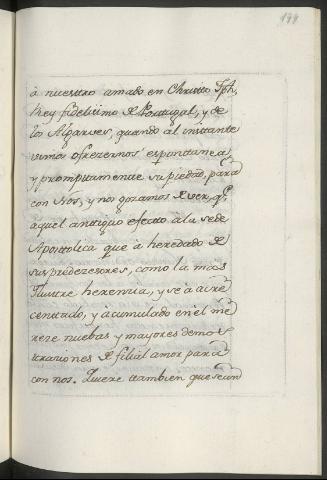 199
à nuestro amado en Christo Jph,
Rey fidelissimo de Portugal, y de
los Algarves, quando al instante
vimos ofrezernos espontanea
y promptamente su piedad, para
con Nos, y nos gozamos de ver, q.e
aquel antiguo efecto à la sede
Apostolica que à heredado de
sus predezesores, como la mas
Ilustre herenzia, y se a acre
centado, y acumulado en el me
reze nuebas y mayores demos
traziones de filial amor para
con nos. Quiere tambien que se un